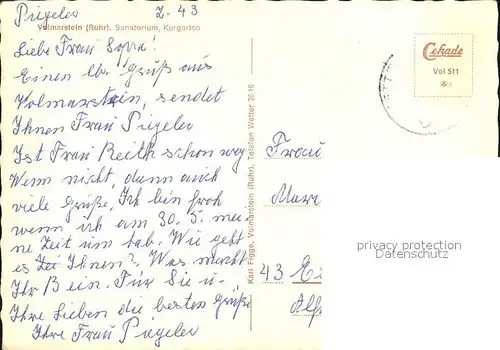 Piegeler Z. 43
Volmarstein (Ruhr), Sanatorium, Kurgarten
Liebe Frau
Einen lb. Gruß aus
Volmarstein, sendet
Ihnen Frau Piegeler
Ist Frau Reith schon weg
Wenn nicht dann auch
viele Grüße, Ich bin froh
wenn ich am 30. 5. mei-
ne Zeit um hab. Wie geht
es Zei Ihnen? Was macht
Ihr Bein. Für Sie u.
Ihre Lieben die besten Grüße
Ihre Frau Piegeler
Karl Figge, Volmarstein (Ruhr), Telefon Wetter 2616
Cekade
Vol 511
Frau
43 E
privacy protection
Datenschutz